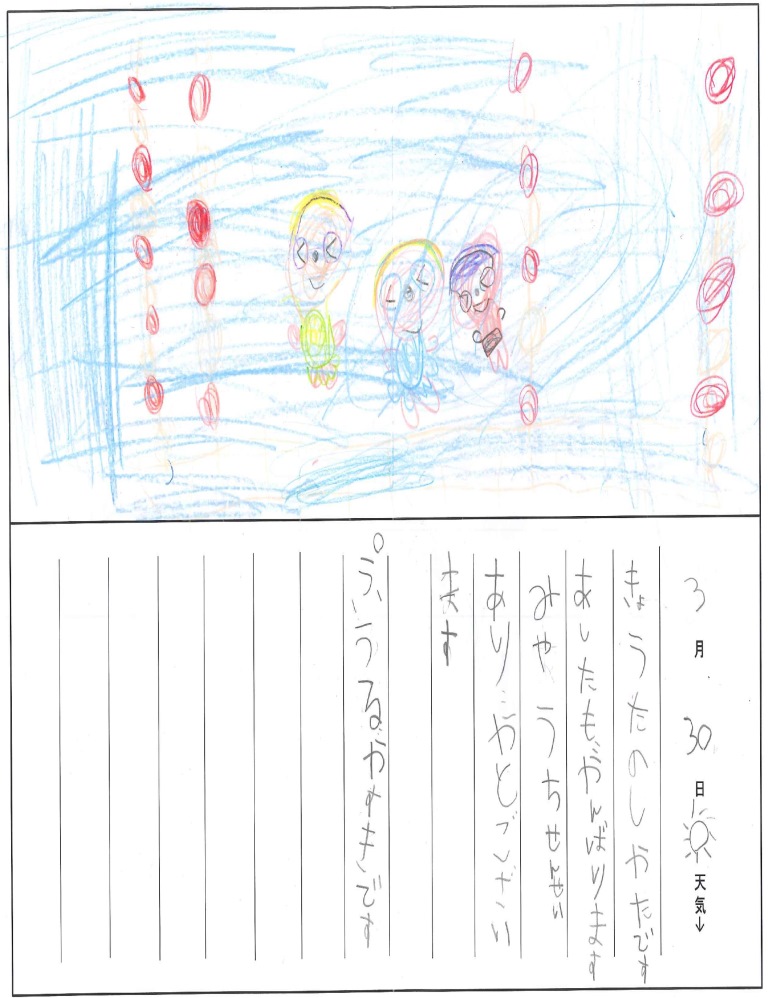 3月30日 天気→
きょうたのしかたです
あしたもがんばります
みやうちせんせい
ありがとござい
ます
ぷうるがすきです